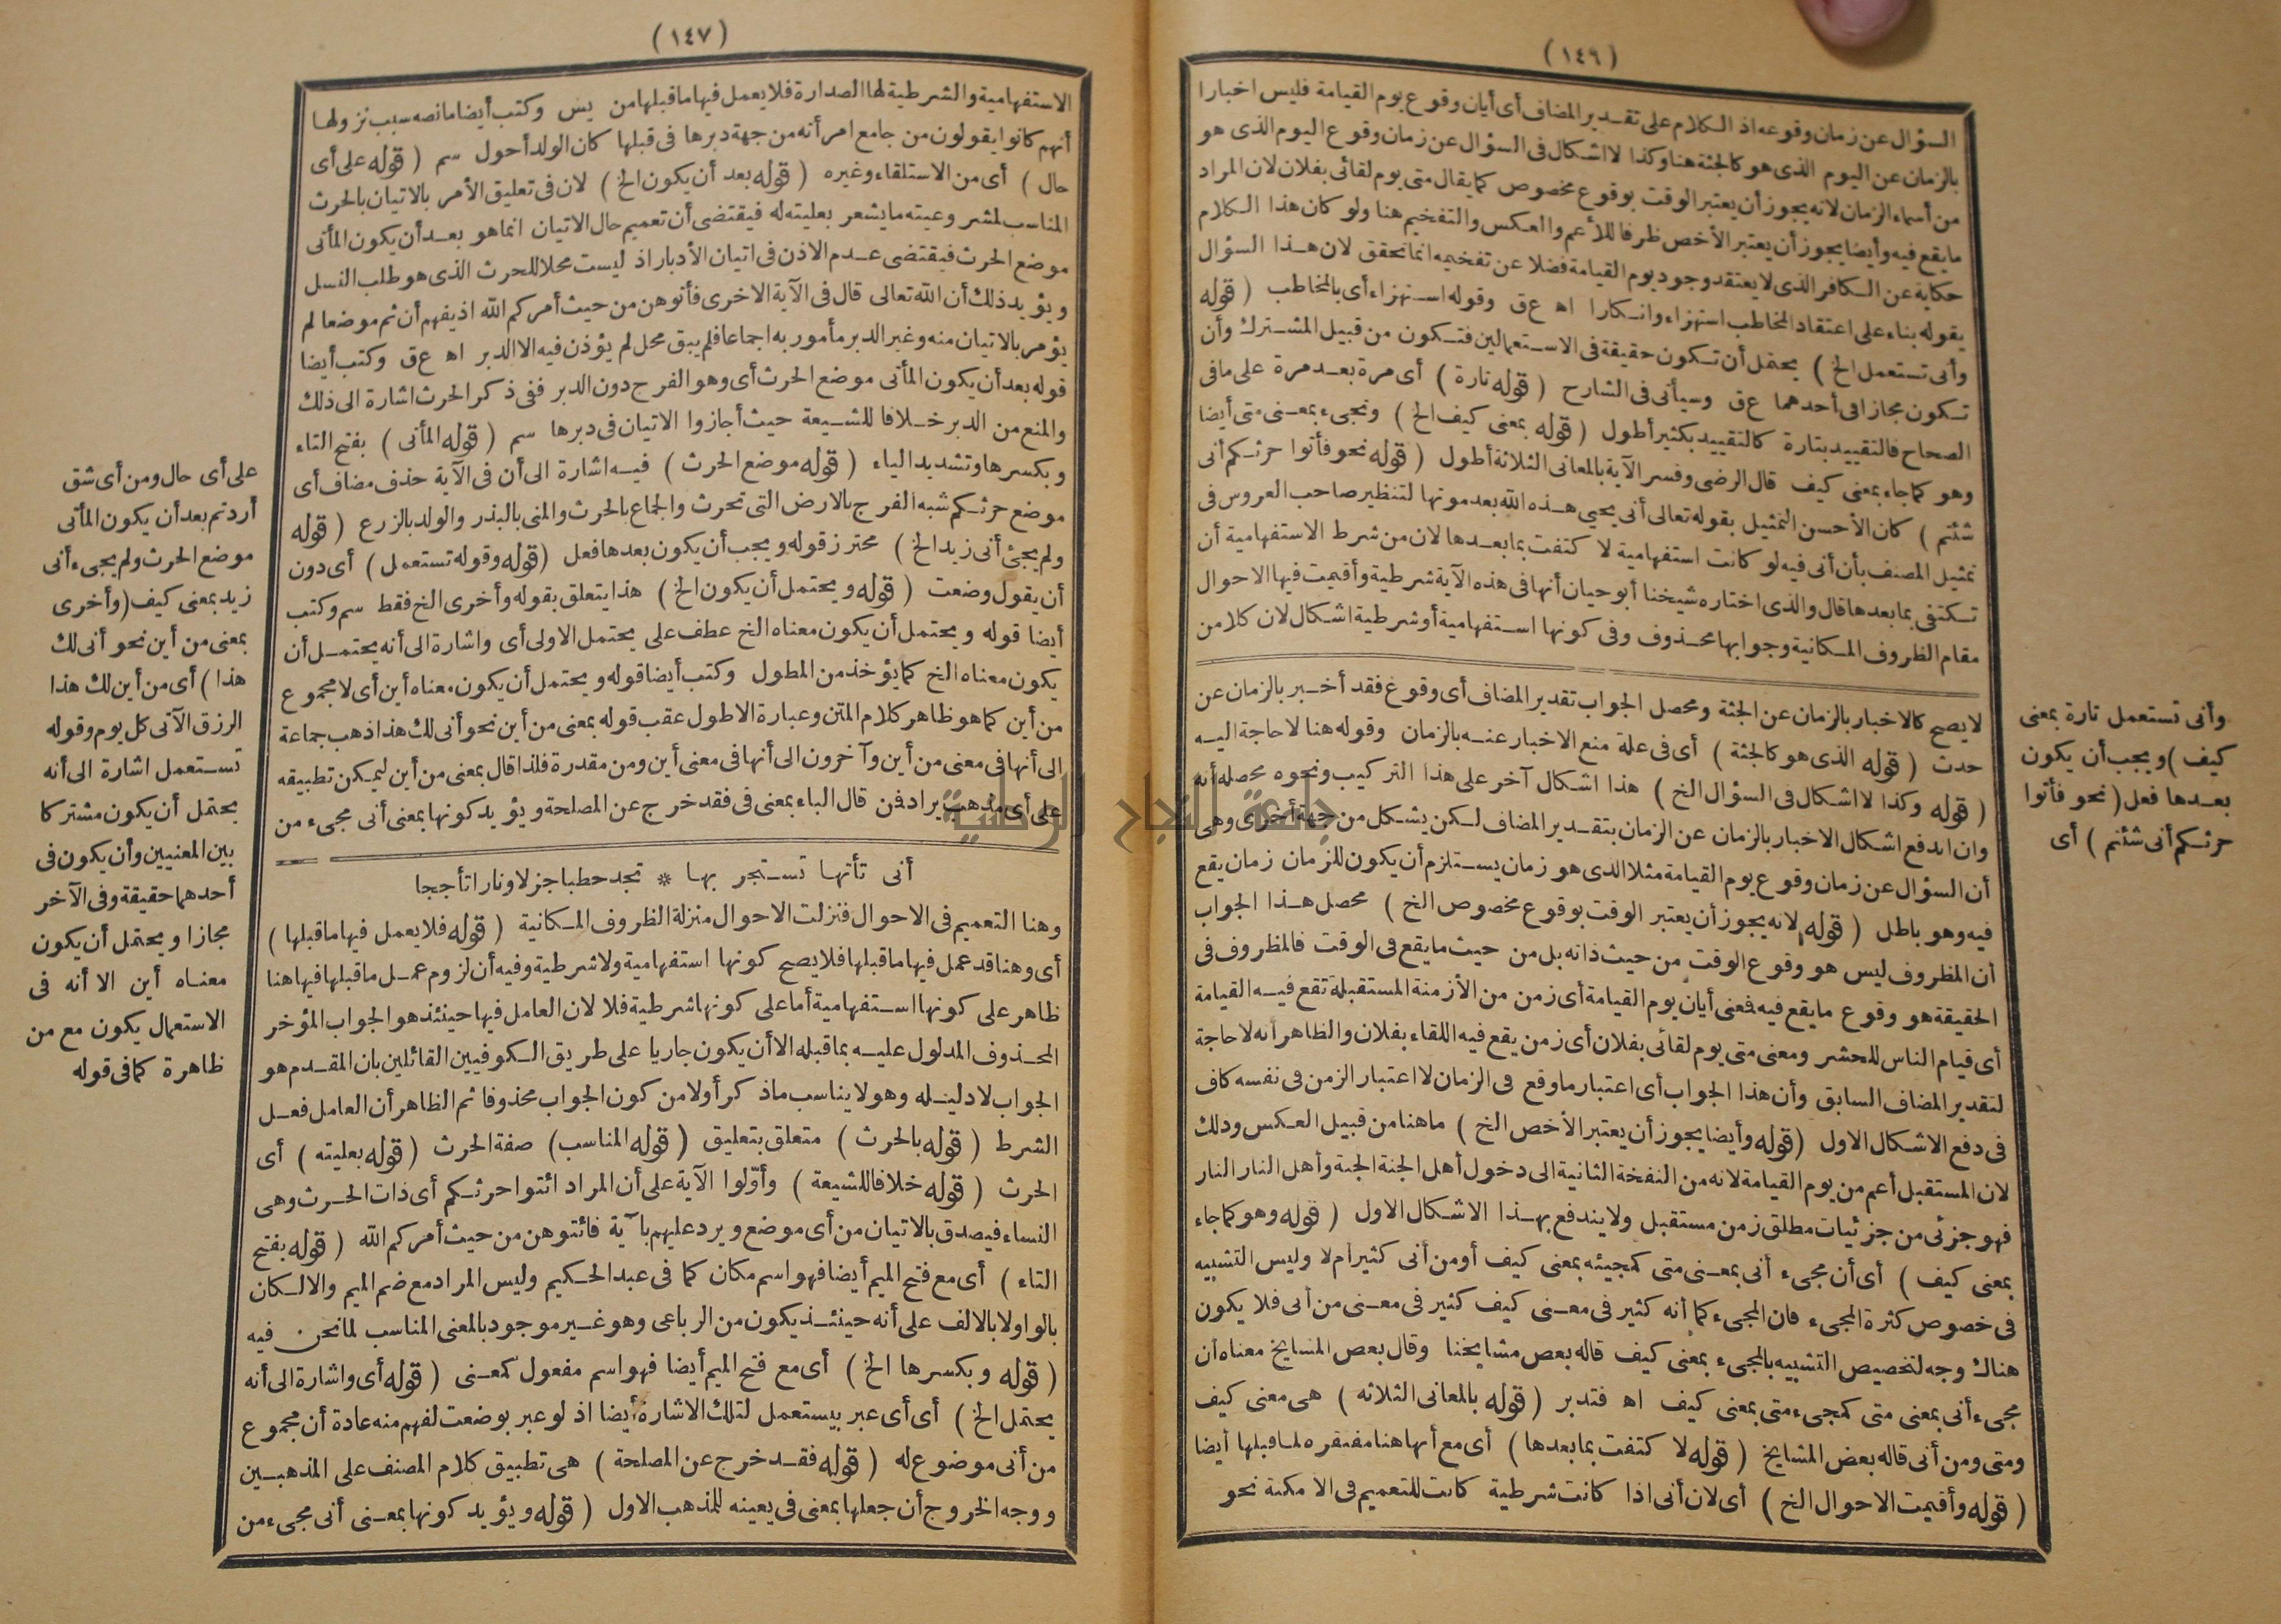 (١٤٦)
السؤال عن زمان وقوعه اذ الكلام على تقدير المضاف أى أيان وقوع يوم القيامة فليس اخبارا
بالزمان عن اليوم الذى هو كالجثة هنا وكذا لا اشكال فى السؤال عن زمان وقوع اليوم الذى هو
من أسماء الزمان لانه يجوز أن يعتبر الوقت بوقوع مخصوص كما يقال متى يوم لقائى بفلان لان المراد
ما يقع فيه وأيضا يجوز أن يعتبر الأخص ظرفا للأعم والعكس والتفخيم هنا ولو كان هذا الكلام
حكاية عن الكافر الذى لا يعتقد وجود يوم القيامة فضلا عن تفخيمه انما تحقق لان هذا السؤال
يقوله بناء على اعتقاد المخاطب استهزاء وانكارا اه ع ق وقوله استهزاء أى بالمخاطب (قوله
وأنى تستعمل الخ) يحتمل أن تكون حقيقة فى الاستعمالين فتكون من قبيل المشترك وأن
تكون مجازا فى أحدهما ع ق وسيأتى فى الشارح (قوله تارة) أى مرة بعد مرة على ما فى
الصحاح فالتقييد بتارة كالتقييد بكثير أطول (قوله بمعنى كيف الخ) وتجىء بمعنى متى أيضا
وهو كما جاء بمعنى كيف قال الرضى وفسر الآية بالمعانى الثلاثة أطول (قوله نحو فأتوا حرثكم أنى
شئتم) كان الأحسن التمثيل بقوله تعالى أنى يحيى هذه الله بعد موتها لتنظير صاحب العروس فى
تمثيل المصنف بأن أنى فيه لو كانت استفهامية لا كتفت بما بعدها لان من شرط الاستفهامية أن
تكتفى بما بعدها قال والذى اختاره شيخنا أبو حيان أنها فى هذه الآية شرطية وأقيمت فيها الاحوال
مقام الظروف المكانية وجوابها محذوف وفى كونها استفهامية أو شرطية اشكال لان كلا من
لا يصح كالاخبار بالزمان عن الجثة ومحصل الجواب تقدير المضاف أى وقوع فقد أخبر بالزمان عن
حدث (قوله الذى هو كالجثة) أى فى علة منع الاخبار عنه بالزمان وقوله هنا لا حاجة اليه
(قوله وكذا لا اشكال فى السؤال الخ) هذا اشكال آخر على هذا التركيب ونحوه محصله أنه
وان اندفع اشكال الاخبار بالزمان عن الزمان بتقدير المضاف لكن يشكل من جهة أخرى وهى
أن السؤال عن زمان وقوع يوم القيامة مثلا الذى هو زمان يستلزم أن يكون للزمان زمان يقع
فيه وهو باطل (قوله لانه يجوز أن يعتبر الوقت بوقوع مخصوص الخ) محصل هذا الجواب
أن المظروف ليس هو وقوع الوقت من حيث ذاته بل من حيث ما يقع فى الوقت فالمظروف فى
الحقيقة هو وقوع ما يقع فيه فمعنى أيان يوم القيامة أى زمن من الأزمنة المستقبلة تقع فيه القيامة
أى قيام الناس للحشر ومعنى متى يوم لقائى بفلان أى زمن يقع فيه اللقاء بفلان والظاهر أنه لا حاجة
لتقدير المضاف السابق وأن هذا الجواب أى اعتبار ما وقع فى الزمان لا اعتبار الزمن فى نفسه كاف
فى دفع الاشكال الاول (قوله وأيضا يجوز أن يعتبر الأخص الخ) ما هنا من قبيل العكس وذلك
لان المستقبل أعم من يوم القيامة لانه من النفخة الثانية الى دخول أهل الجنة الجنة وأهل النار النار
فهو جزئى من جزئيات مطلق زمن مستقبل ولا يندفع بهذا الاشكال الاول (قوله وهو كما جاء
بمعنى كيف) أى أن مجىء أنى بمعنى متى كمجيئه بمعنى كيف أو من أنى كثيرا أم لا وليس التشبيه
فى خصوص كثرة المجىء فان المجىء كما أنه كثير فى معنى كيف كثير فى معنى من أنى فلا يكون
هناك وجه لتخصيص التشبيه بالمجىء بمعنى كيف قاله بعض مشايخنا وقال بعض المشايخ معناه أن
مجىء أنى بمعنى متى كمجىء متى بمعنى كيف اه فتدبر (قوله بالمعانى الثلاثة) هى معنى كيف
ومتى ومن أنى قاله بعض المشايخ (قوله لا كتفت بما بعدها) أى مع أنها هنا مفتقرة لما قبلها أيضا
(قوله وأقيمت الاحوال الخ) أى لان أنى اذا كانت شرطية كانت للتعميم فى الامكنة نحو
وأنى تستعمل تارة بمعنى
كيف) ويجب أن يكون
بعدها فعل (نحو فأتوا
حرثكم أنى شئتم) أى
(١٤٧)
الاستفهامية والشرطية لها الصدارة فلا يعمل فيها ما قبلها من يس وكتب أيضا ما نصه سبب نزولها
أنهم كانوا يقولون من جامع امرأته من جهة دبرها فى قبلها كان الولد أحول سم (قوله على أى
حال) أى من الاستلقاء وغيره (قوله بعد أن يكون الخ) لان فى تعليق الأمر بالاتيان بالحرث
المناسب لمشروعيته ما يشعر بعليته له فيقتضى أن تعميم حال الاتيان انما هو بعد أن يكون المأتى
موضع الحرث فيقتضى عدم الاذن فى اتيان الأدبار اذ ليست محلا للحرث الذى هو طلب النسل
ويؤيد ذلك أن الله تعالى قال فى الآية الاخرى فأتوهن من حيث أمركم الله اذ يفهم أن ثم موضعا لم
يؤمر بالاتيان منه وغير الدبر مأمور به اجماعا فلم يبق محل لم يؤذن فيه الا الدبر اه ع ق وكتب أيضا
قوله بعد أن يكون المأتى موضع الحرث أى وهو الفرج دون الدبر ففى ذكر الحرث اشارة الى ذلك
والمنع من الدبر خلافا للشيعة حيث أجازوا الاتيان فى دبرها سم (قوله المأتى) بفتح التاء
وبكسرها وتشديد الياء (قوله موضع الحرث) فيه اشارة الى أن فى الآية حذف مضاف أى
موضع حرثكم شبه الفرج بالارض التى تحرث والجماع بالحرث والمنى بالبذر والولد بالزرع (قوله
ولم يجئ أنى زيد الخ) محترز قوله ويجب أن يكون بعدها فعل (قوله وقوله تستعمل) أى دون
أن يقول وضعت (قوله ويحتمل أن يكون الخ) هذا يتعلق بقوله وأخرى الخ فقط سم وكتب
أيضا قوله ويحتمل أن يكون معناه الخ عطف على يحتمل الاولى أى واشارة الى أنه يحتمل أن
يكون معناه الخ كما يؤخذ من المطول وكتب أيضا قوله ويحتمل أن يكون معناه أين أى لا مجموع
من أين كما هو ظاهر كلام المتن وعبارة الاطول عقب قوله بمعنى من أين نحو أنى لك هذا ذهب جماعة
الى أنها فى معنى من أين وآخرون الى أنها فى معنى أين ومن مقدرة فلذا قال بمعنى من أين ليمكن تطبيقه
على أى مذهب يراد فمن قال الباء بمعنى فى فقد خرج عن المصلحة ويؤيد كونها بمعنى أنى مجىء من
أنى تأتها تستجر بها * تجد حطبا جزلا ونارا تأججا
وهنا التعميم فى الاحوال فنزلت الاحوال منزلة الظروف المكانية (قوله فلا يعمل فيها ما قبلها)
أى وهنا قد عمل فيها ما قبلها فلا يصح كونها استفهامية ولا شرطية وفيه أن لزوم عمل ما قبلها فيها هنا
ظاهر على كونها استفهامية أما على كونها شرطية فلا لان العامل فيها حينئذ هو الجواب المؤخر
المحذوف المدلول عليه بما قبله الا أن يكون جاريا على طريق الكوفيين القائلين بان المقدم هو
الجواب لا دليله وهو لا يناسب ما ذكر أولا من كون الجواب محذوفا ثم الظاهر أن العامل فعل
الشرط (قوله بالحرث) متعلق بتعليق (قوله المناسب) صفة الحرث (قوله بعليته) أى
الحرث (قوله خلافا للشيعة) وأوّلوا الآية على أن المراد ائتوا حرثكم أى ذات الحرث وهى
النساء فيصدق بالاتيان من أى موضع ويرد عليهم بآية فائتوهن من حيث أمركم الله (قوله بفتح
التاء) أى مع فتح الميم أيضا فهو اسم مكان كما فى عبد الحكيم وليس المراد مع ضم الميم والا لكان
بالواو لا بالالف على أنه حينئذ يكون من الرباعى وهو غير موجود بالمعنى المناسب لما نحن فيه
(قوله وبكسرها الخ) أى مع فتح الميم أيضا فهو اسم مفعول كمعنى (قوله أى واشارة الى أنه
يحتمل الخ) أى أى عبر بيستعمل لتلك الاشارة أيضا اذ لو عبر بوضعت لفهم منه عادة أن مجموع
من أنى موضوع له (قوله فقد خرج عن المصلحة) هى تطبيق كلام المصنف على المذهبين
ووجه الخروج أن جعلها بمعنى فى يعينه للمذهب الاول (قوله ويؤيد كونها بمعنى أنى مجىء من
على أى حال ومن أى شق
أردتم بعد أن يكون المأتى
موضع الحرث ولم يجىء أنى
زيد بمعنى كيف (وأخرى
بمعنى من أين نحو أنى لك
هذا) أى من أين لك هذا
الرزق الآتى كل يوم وقوله
تستعمل اشارة الى أنه
يحتمل أن يكون مشتركا
بين المعنيين وأن يكون فى
أحدهما حقيقة وفى الآخر
مجازا ويحتمل أن يكون
معناه أين الا أنه فى
الاستعمال يكون مع من
ظاهرة كما فى قوله
جامعة النجاح الوطنية